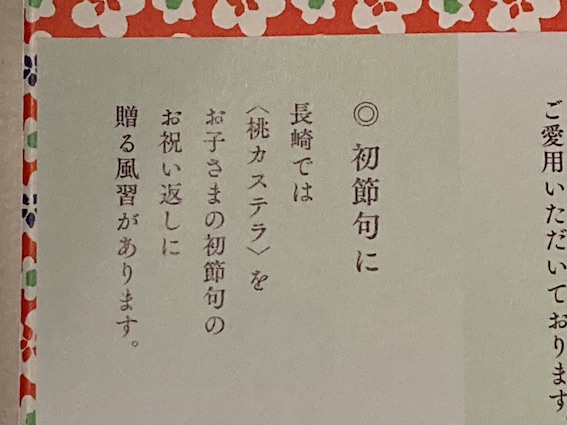 ご愛用いただいております。
◎ 初節句に
長崎では
〈桃カステラ〉を
お子さまの初節句の
お祝い返しに
贈る風習があります。